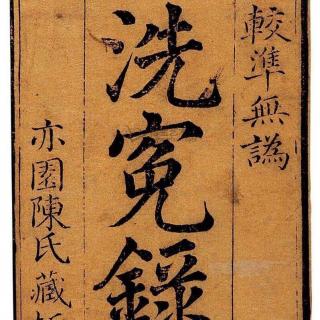 較準無譌
洗冤錄
亦園陳氏藏